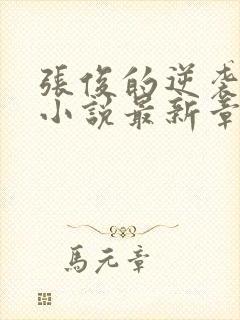 張俊的逆袭
小說最新章
馬元章